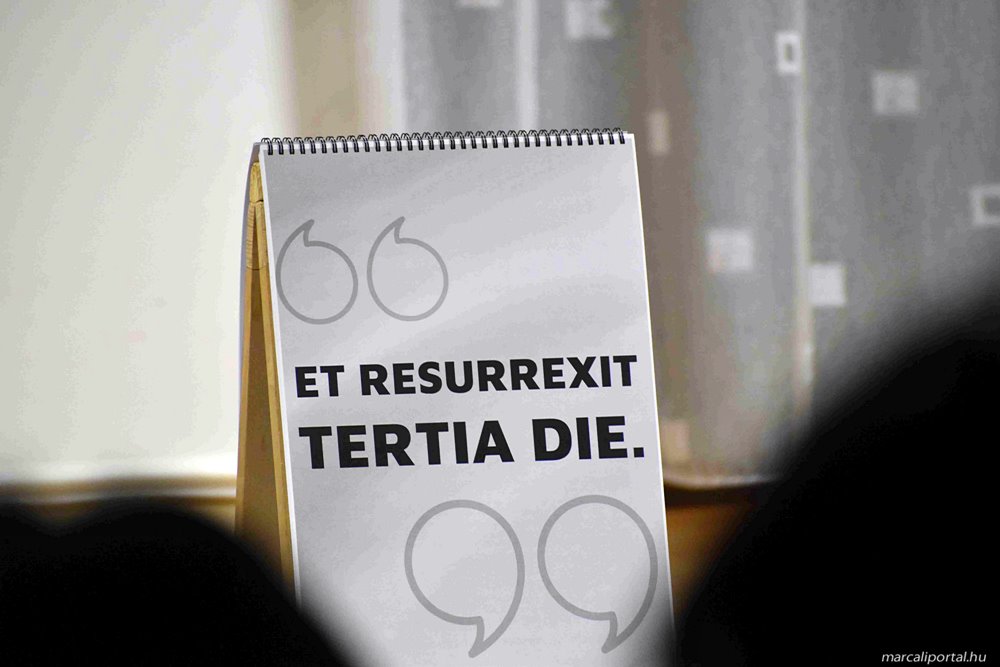 ET RESURREXIT
TERTIA DIE.
marcaliportal.hu